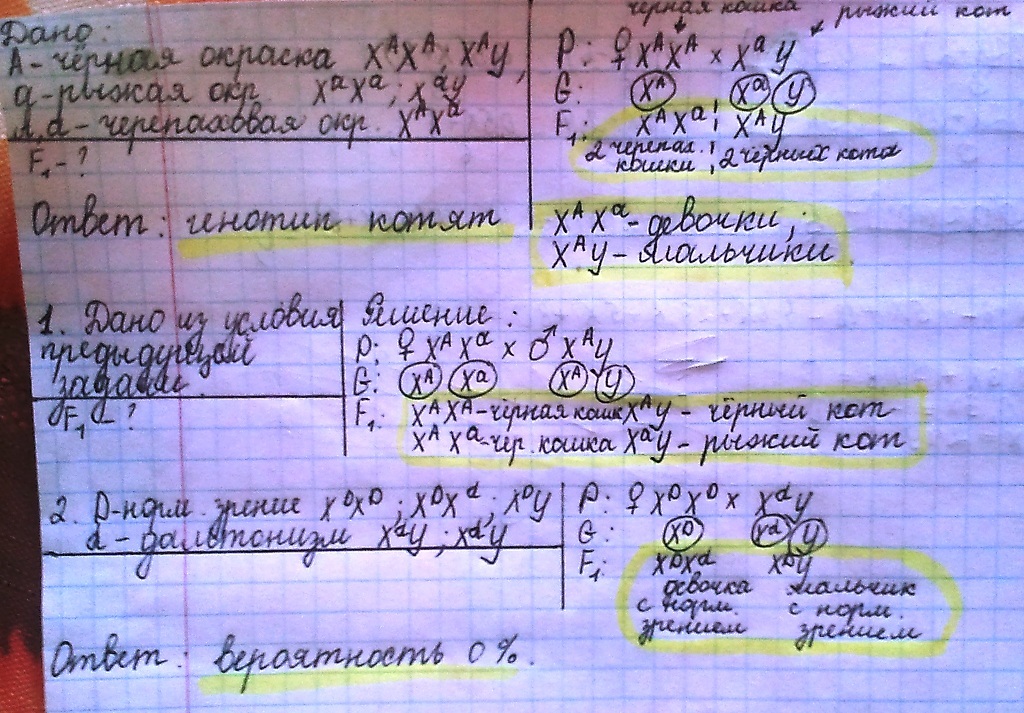 чёрная кошка рыжий кот
Дано:
А - чёрная окраска X^A X^A; X^A y,
а - рыжая окр. X^a X^a; X^a y
А,а - черепаховая окр. X^A X^a
F₁ - ?
P: ♀ X^A X^A × X^a y
G: X^A X^a y
F₁: X^A X^a ; X^A y
2 черепах. ;
кошки ; 2 чёрных кота
Ответ: генотип котят X^A X^a - девочки;
X^A y - мальчики
1. Дано из условия
предыдущей
задачи.
F₁ - ?
Решение:
P: ♀ X^A X^a × ♂ X^A y
G: X^A X^a X^A y
F₁: X^A X^A - чёрная кошк X^A y - чёрный кот
X^A X^a - чер. кошка X^a y - рыжий кот
2. D - норм. зрение X^D X^D ; X^D X^d ; X^D y
d - дальтонизм X^d y ; X^d y
P: ♀ X^D X^D × X^d y
G: X^D X^d y
F₁: X^D X^d X^D y
девочка мальчик
с норм. с норм.
зрением зрением
Ответ: вероятность 0%.